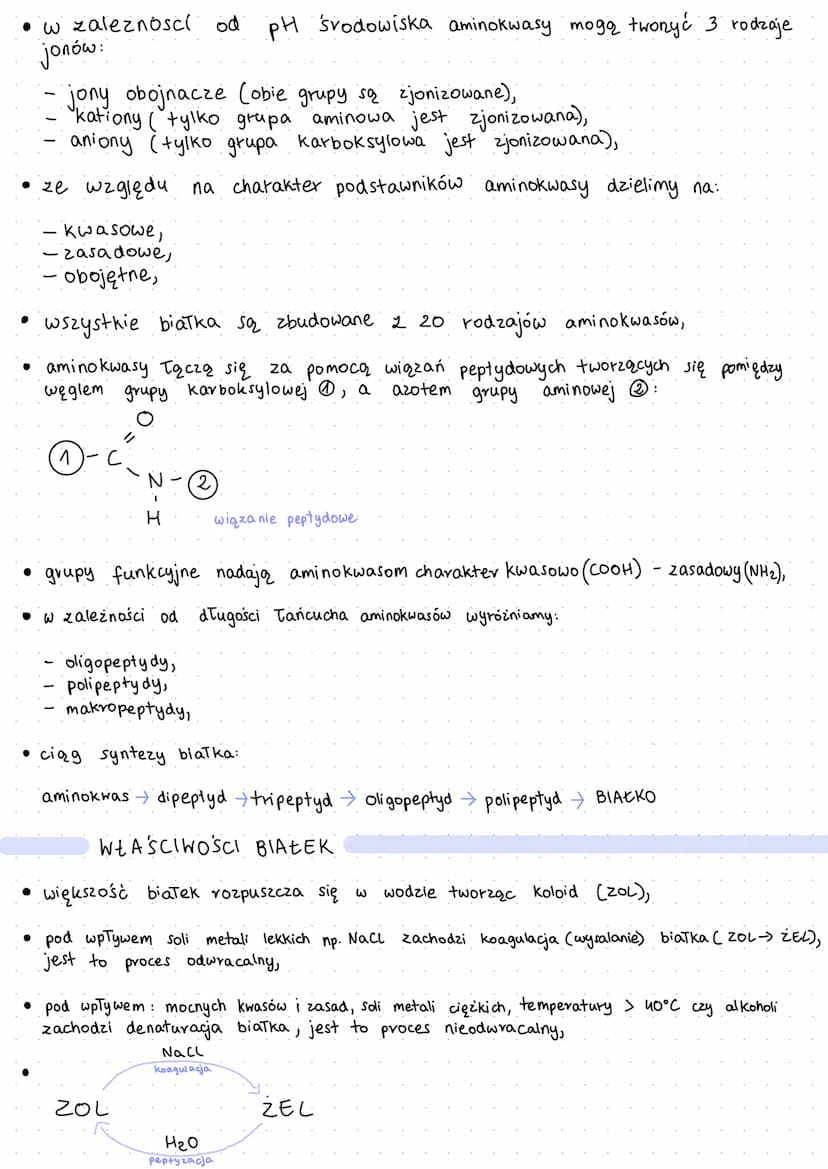 • w zależności od pH środowiska aminokwasy mogą tworzyć 3 rodzaje
jonów:
- jony obojnacze (obie grupy są zjonizowane),
- kationy (tylko grupa aminowa jest zjonizowana),
- aniony (tylko grupa karboksylowa jest zjonizowana),
• ze względu na charakter podstawników aminokwasy dzielimy na:
- kwasowe,
- zasadowe,
- obojętne,
• wszystkie białka są zbudowane z 20 rodzajów aminokwasów,
• aminokwasy łączą się za pomocą wiązań peptydowych tworzących się pomiędzy
węglem grupy karboksylowej ①, a azotem grupy aminowej ②:
O
① - C
N - ②
H
wiązanie peptydowe
• grupy funkcyjne nadają aminokwasom charakter kwasowo (COOH) - zasadowy (NH₂),
• w zależności od długości łańcucha aminokwasów wyróżniamy:
- oligopeptydy,
- polipeptydy,
- makropeptydy,
• ciąg syntezy białka:
aminokwas → dipeptyd → tripeptyd → oligopeptyd → polipeptyd → BIAŁKO
WŁAŚCIWOŚCI BIAŁEK
• większość białek rozpuszcza się w wodzie tworząc koloid (ZOL),
• pod wpływem soli metali lekkich np. NaCl zachodzi koagulacja (wysalanie) białka (ZOL → ŻEL),
jest to proces odwracalny,
• pod wpływem: mocnych kwasów i zasad, soli metali ciężkich, temperatury > 40°C czy alkoholi
zachodzi denaturacja białka, jest to proces nieodwracalny,
• NaCl
koagulacja
ZOL ŻEL
H₂O
peptyzacja